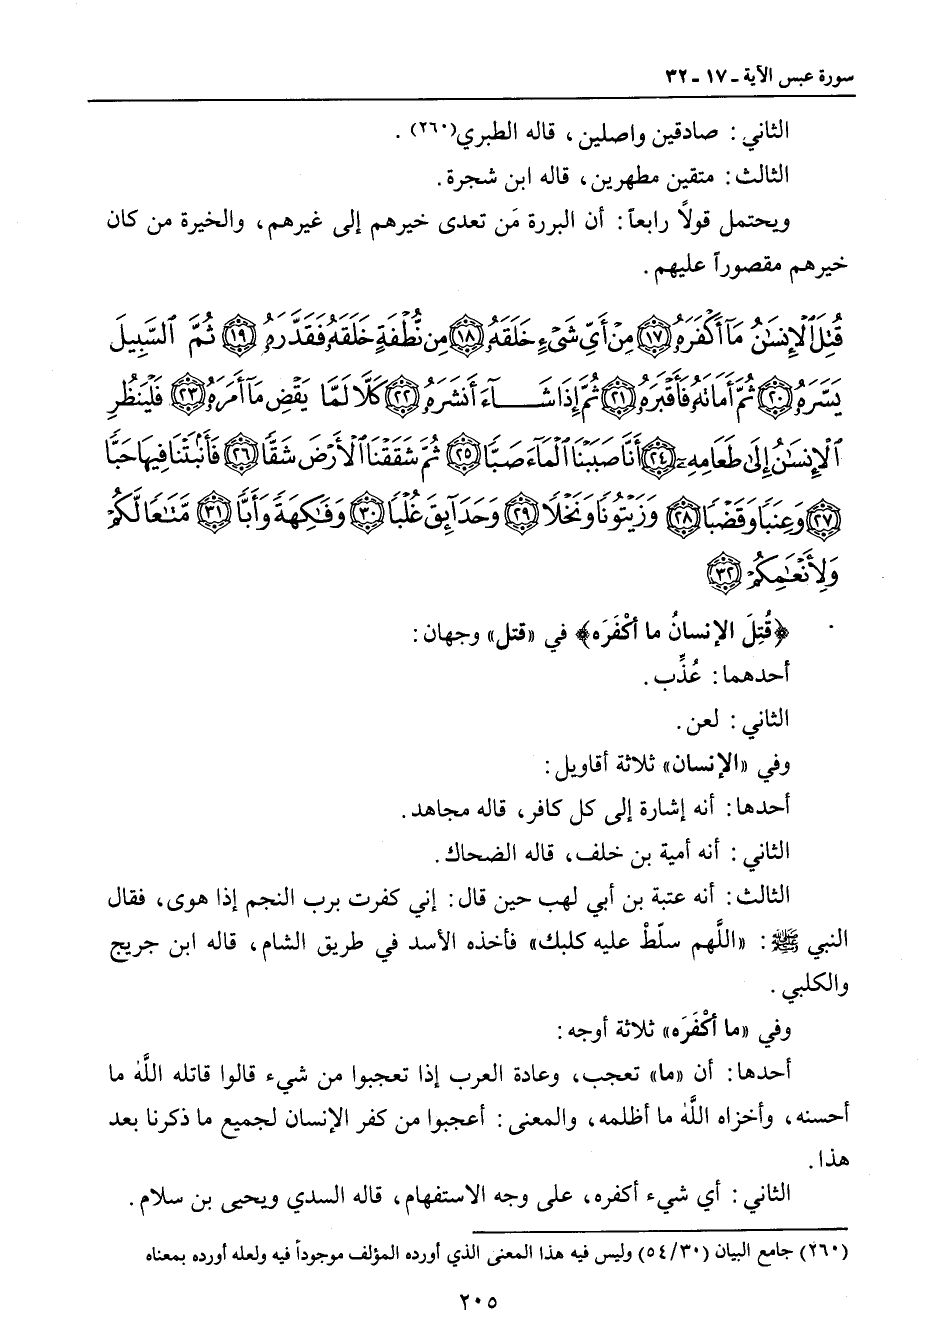 سورة عبس الآية ـ ١٧ ـ ٣٢
الثاني : صادقين واصلين ، قاله الطبري(٢٦٠) .
الثالث : متقين مطهرين ، قاله ابن شجرة .
ويحتمل قولاً رابعاً : أن البررة مَن تعدى خيرهم إلى غيرهم ، والخيرة من كان
خيرهم مقصوراً عليهم .
قُتِلَ ٱلْإِنسَٰنُ مَآ أَكْفَرَهُۥ ﴿١٧﴾ مِنْ أَيِّ شَيْءٍ خَلَقَهُۥ ﴿١٨﴾ مِن نُّطْفَةٍ خَلَقَهُۥ فَقَدَّرَهُۥ ﴿١٩﴾ ثُمَّ ٱلسَّبِيلَ
يَسَّرَهُۥ ﴿٢٠﴾ ثُمَّ أَمَاتَهُۥ فَأَقْبَرَهُۥ ﴿٢١﴾ ثُمَّ إِذَا شَآءَ أَنشَرَهُۥ ﴿٢٢﴾ كَلَّا لَمَّا يَقْضِ مَآ أَمَرَهُۥ ﴿٢٣﴾ فَلْيَنظُرِ
ٱلْإِنسَٰنُ إِلَىٰ طَعَامِهِۦٓ ﴿٢٤﴾ أَنَّا صَبَبْنَا ٱلْمَآءَ صَبًّا ﴿٢٥﴾ ثُمَّ شَقَقْنَا ٱلْأَرْضَ شَقًّا ﴿٢٦﴾ فَأَنۢبَتْنَا فِيهَا حَبًّا
﴿٢٧﴾ وَعِنَبًا وَقَضْبًا ﴿٢٨﴾ وَزَيْتُونًا وَنَخْلًا ﴿٢٩﴾ وَحَدَآئِقَ غُلْبًا ﴿٣٠﴾ وَفَٰكِهَةً وَأَبًّا ﴿٣١﴾ مَّتَٰعًا لَّكُمْ
وَلِأَنْعَٰمِكُمْ ﴿٣٢﴾
﴿قُتِلَ الإنسانُ ما أكْفَرَه﴾ في «قتل» وجهان :
أحدهما : عُذِّب .
الثاني : لعن .
وفي «الإنسان» ثلاثة أقاويل :
أحدها : أنه إشارة إلى كل كافر ، قاله مجاهد .
الثاني : أنه أمية بن خلف ، قاله الضحاك .
الثالث : أنه عتبة بن أبي لهب حين قال : إني كفرت برب النجم إذا هوى ، فقال
النبي ﷺ : «اللَّهم سلّطْ عليه كلبك» فأخذه الأسد في طريق الشام ، قاله ابن جريج
والكلبي .
وفي «ما أكْفَرَه» ثلاثة أوجه :
أحدها : أن «ما» تعجب ، وعادة العرب إذا تعجبوا من شيء قالوا قاتله اللَّه ما
أحسنه ، وأخزاه اللَّه ما أظلمه ، والمعنى : أعجبوا من كفر الإنسان لجميع ما ذكرنا بعد
هذا .
الثاني : أي شيء أكفره ، على وجه الاستفهام ، قاله السدي ويحيى بن سلام .
(٢٦٠) جامع البيان (٥٤/٣٠) وليس فيه هذا المعنى الذي أورده المؤلف موجوداً فيه ولعله أورده بمعناه
٢٠٥